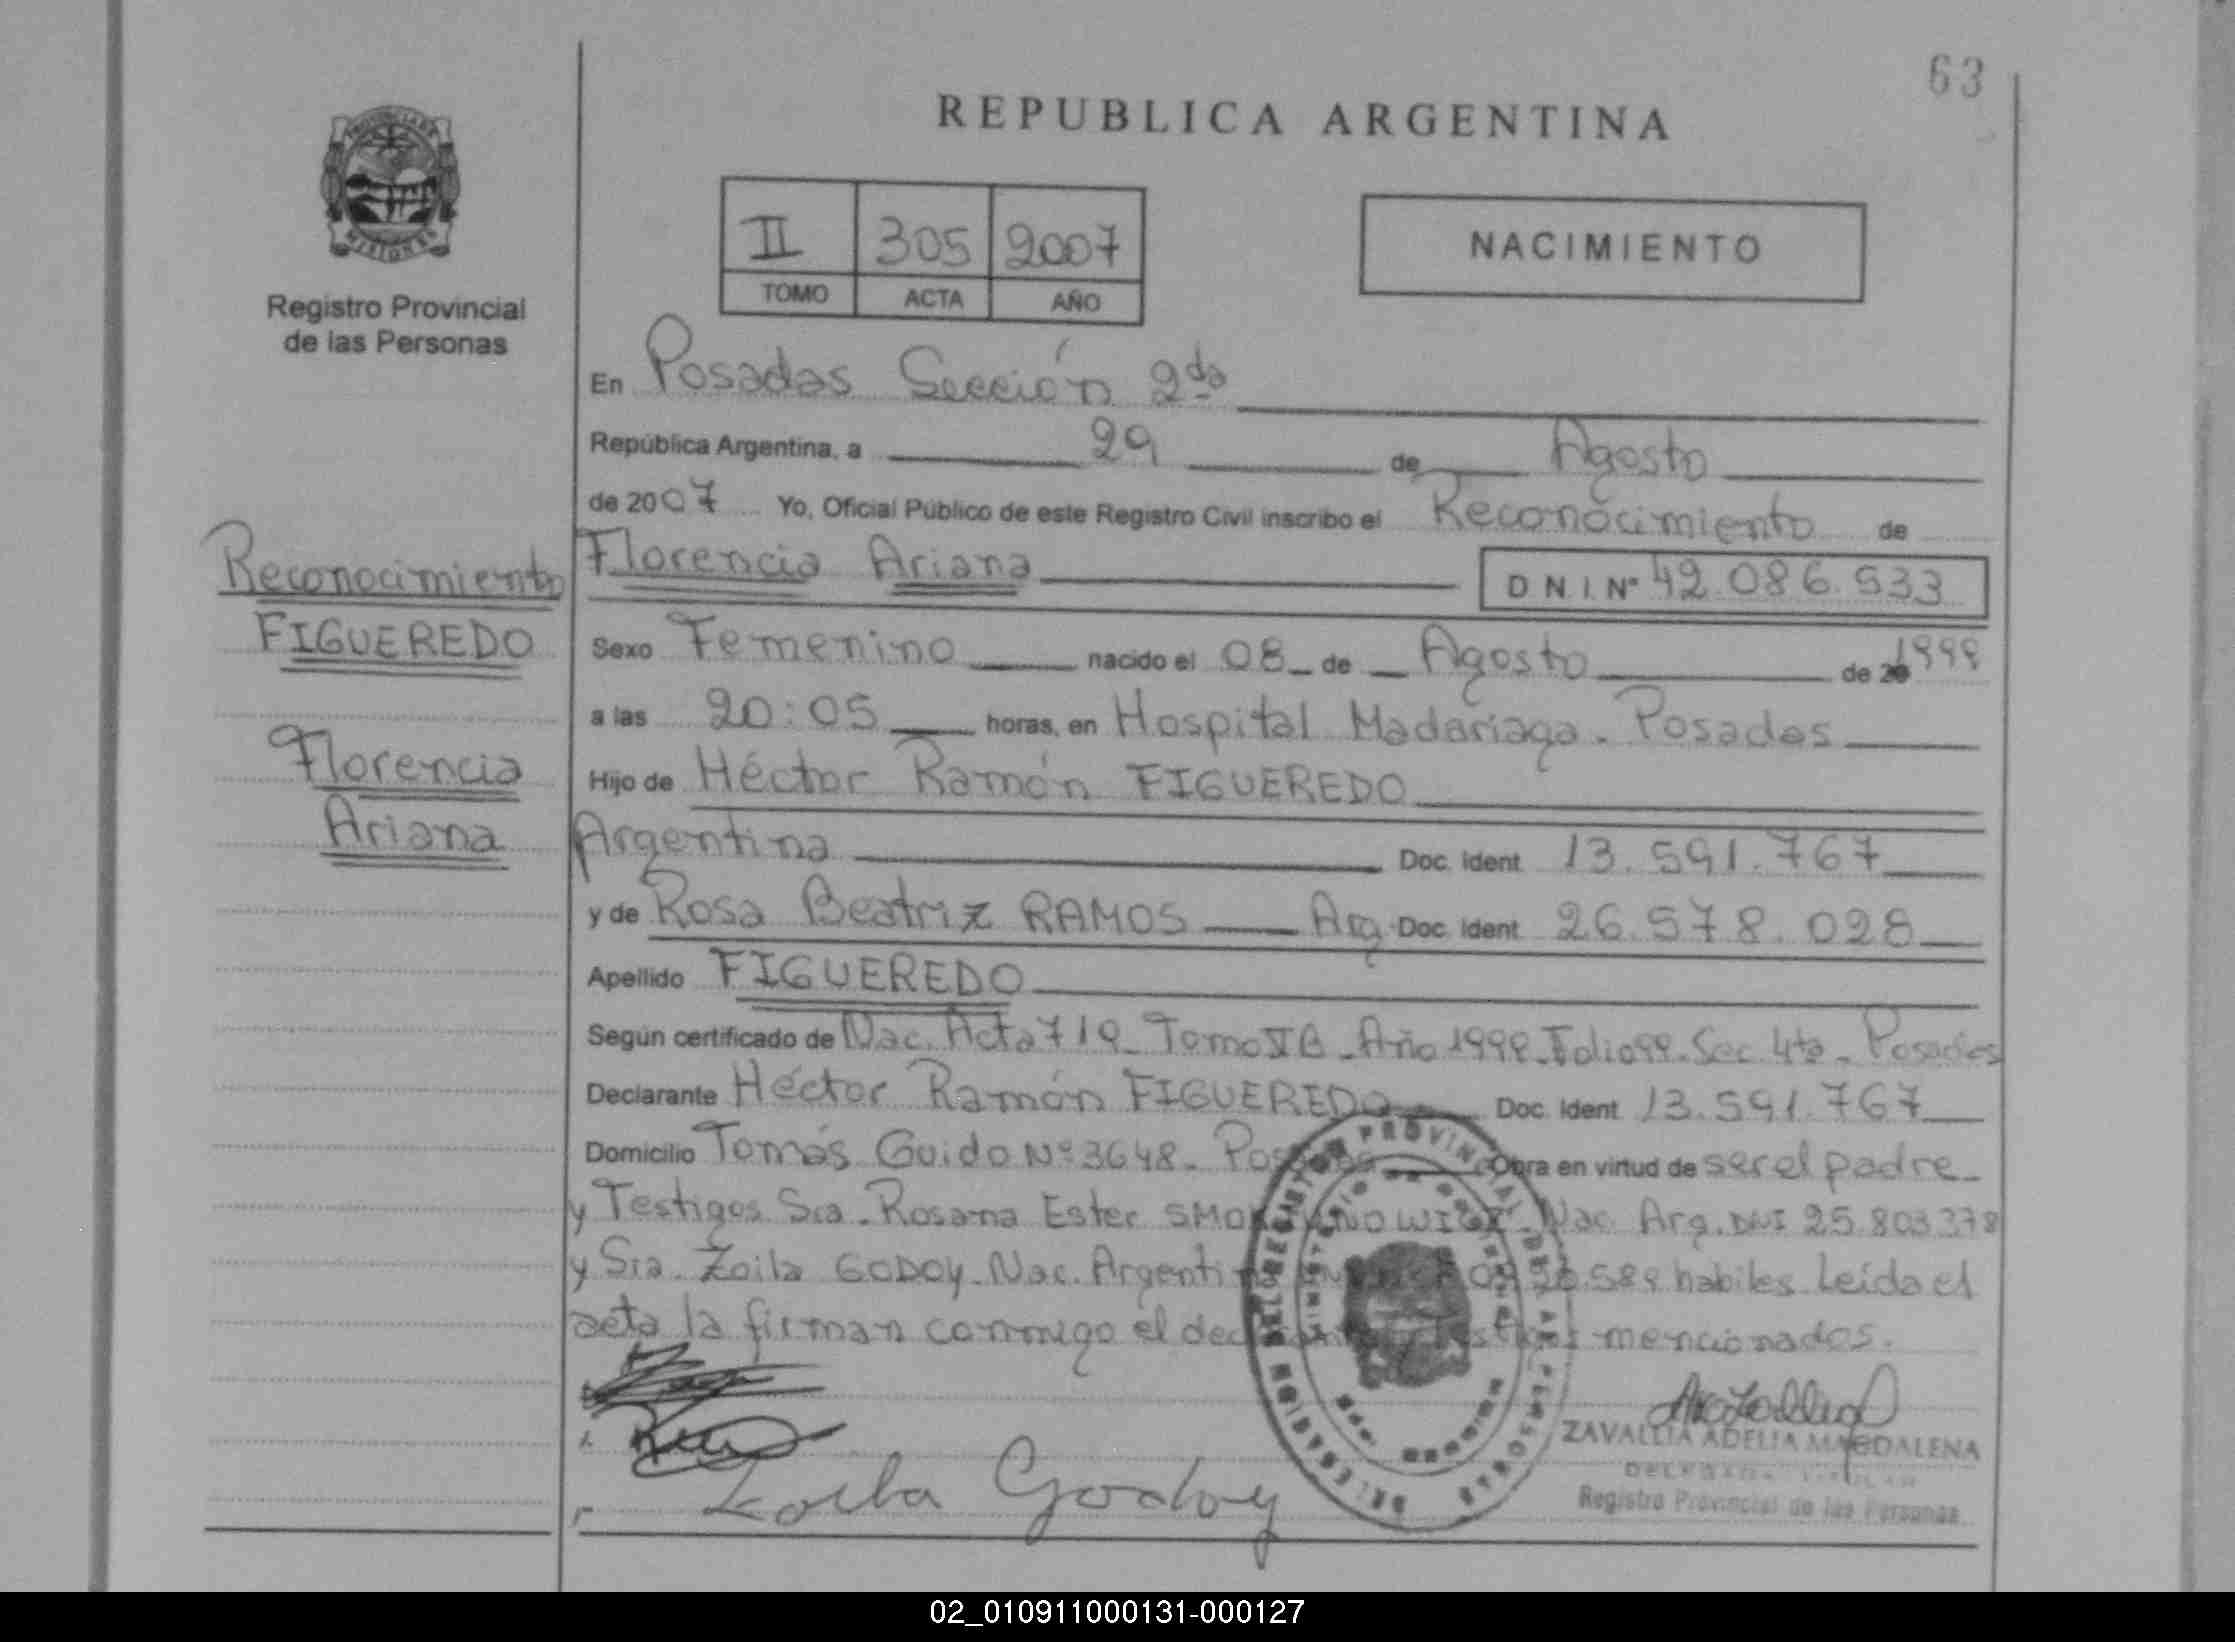 63
REPUBLICA ARGENTINA
II 305 2007
TOMO ACTA AÑO
NACIMIENTO
PROVINCIA DE
MISIONES
Registro Provincial
de las Personas
En Posadas Sección 2da
República Argentina, a 29 de Agosto
de 2007 Yo, Oficial Público de este Registro Civil inscribo el Reconocimiento de
Florencia Ariana D N. I. N° 42.086.533
Sexo Femenino nacido el 08 de Agosto de 1999
a las 20:05 horas, en Hospital Madariaga - Posadas
Hijo de Héctor Ramón FIGUEREDO
Argentina Doc. Ident 13.591.767
y de Rosa Beatriz RAMOS Arg. Doc. Ident 26.578.028
Apellido FIGUEREDO
Según certificado de Nac. Acta 719 - Tomo - Año 1999 - Folio 99 - Sec. 4ta - Posadas
Declarante Héctor Ramón FIGUEREDO Doc. Ident 13.591.767
Domicilio Tomás Guido N° 3648 - Posadas Obra en virtud de ser el padre
y Testigos Sra. Rosana Ester Nac. Arg. DNI 25.803.378
y Sra. Zoila GODOY. Nac. Argentina habiles. Leída el
acta la firman conmigo el declarante y testigos mencionados.
Reconocimiento
FIGUEREDO
Florencia
Ariana
Zoila Godoy
ZAVALLIA ADELIA MAGDALENA
DELEGADA TITULAR
Registro Provincial de las Personas
02_010911000131-000127